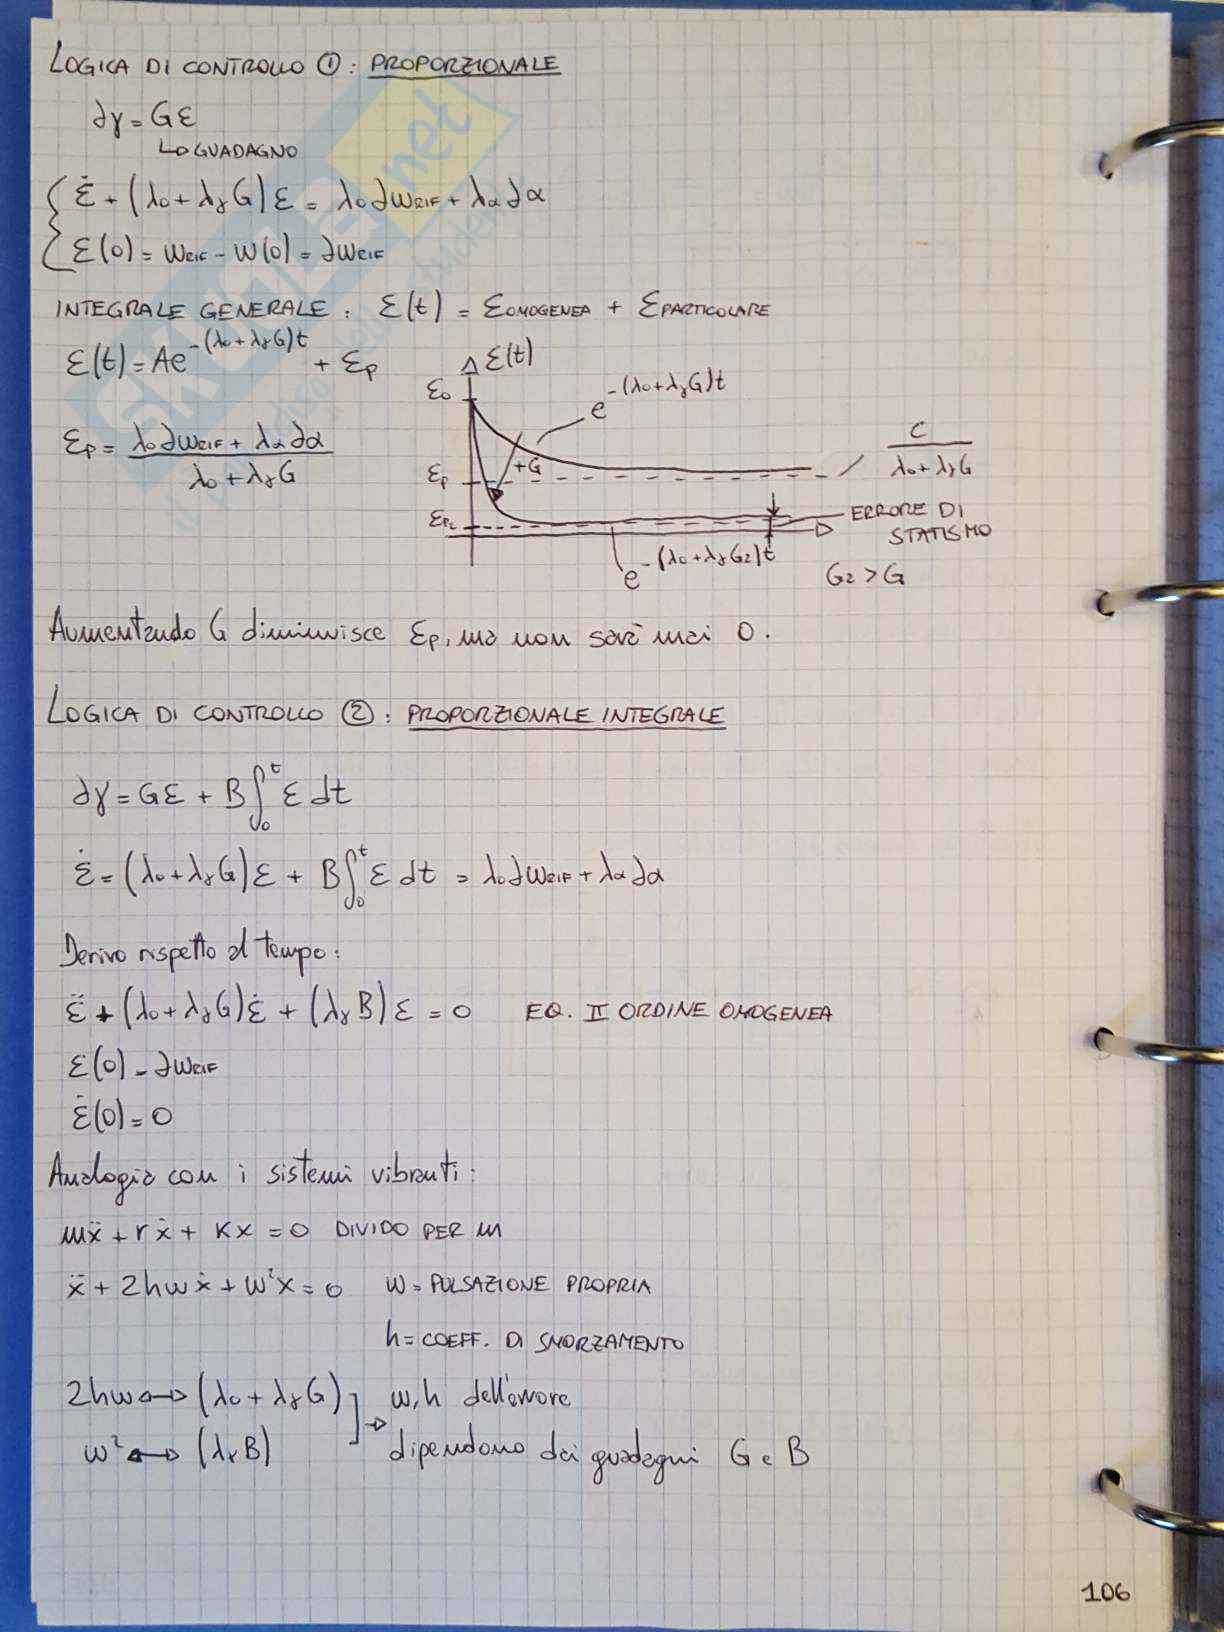 LOGICA DI CONTROLLO ①: PROPORZIONALE
∂γ = Gε
↳ GUADAGNO
{ ε̇ + (λ₀ + λγ G) ε = λ₀ ∂ωRIF + λα ∂α
ε(0) = ωRIF - ω(0) = ∂ωRIF
INTEGRALE GENERALE: ε(t) = εOMOGENEA + εPARTICOLARE
ε(t) = Ae^-(λ₀+λγG)t + εp
εp = (λ₀ ∂ωRIF + λα ∂α) / (λ₀ + λγ G)
ε(t)
ε₀
e^-(λ₀+λγG)t
+G
C / (λ₀ + λγ G)
εp
εp₂
ERRORE DI
STATISMO
e^-(λ₀+λγG₂)t
G₂ > G
Aumentando G diminuisce εp, ma non sarà mai 0.
LOGICA DI CONTROLLO ②: PROPORZIONALE INTEGRALE
∂γ = Gε + B∫₀ᵗ ε dt
ε̇ = (λ₀ + λγ G) ε + B∫₀ᵗ ε dt = λ₀ ∂ωRIF + λα ∂α
Derivo rispetto al tempo:
ε̈ + (λ₀ + λγ G) ε̇ + (λγ B) ε = 0 EQ. II ORDINE OMOGENEA
ε(0) = ∂ωRIF
ε̇(0) = 0
Analogia con i sistemi vibranti:
mẍ + rẋ + Kx = 0 DIVIDO PER m
ẍ + 2hωẋ + ω²x = 0 ω = PULSAZIONE PROPRIA
h = COEFF. DI SMORZAMENTO
2hω ↔ (λ₀ + λγ G) ω, h dell'errore
ω² ↔ (λγ B) → dipendono dai guadagni G e B
106